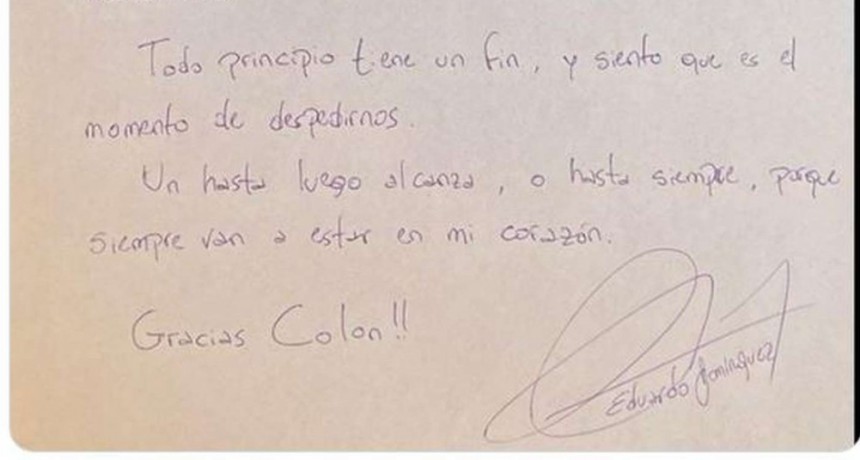 Todo principio tiene un fin, y siento que es el
momento de despedirnos.
Un hasta luego alcanza, o hasta siempre, porque
siempre van a estar en mi corazón.
Gracias Colon!!
Eduardo Dominguez